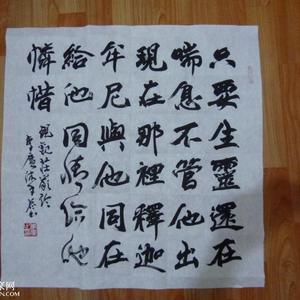 只要生靈還在
喘息不管他出
現在那裡釋迦
牟尼與他同在
給他同情給他
憐惜
現觀莊嚴論